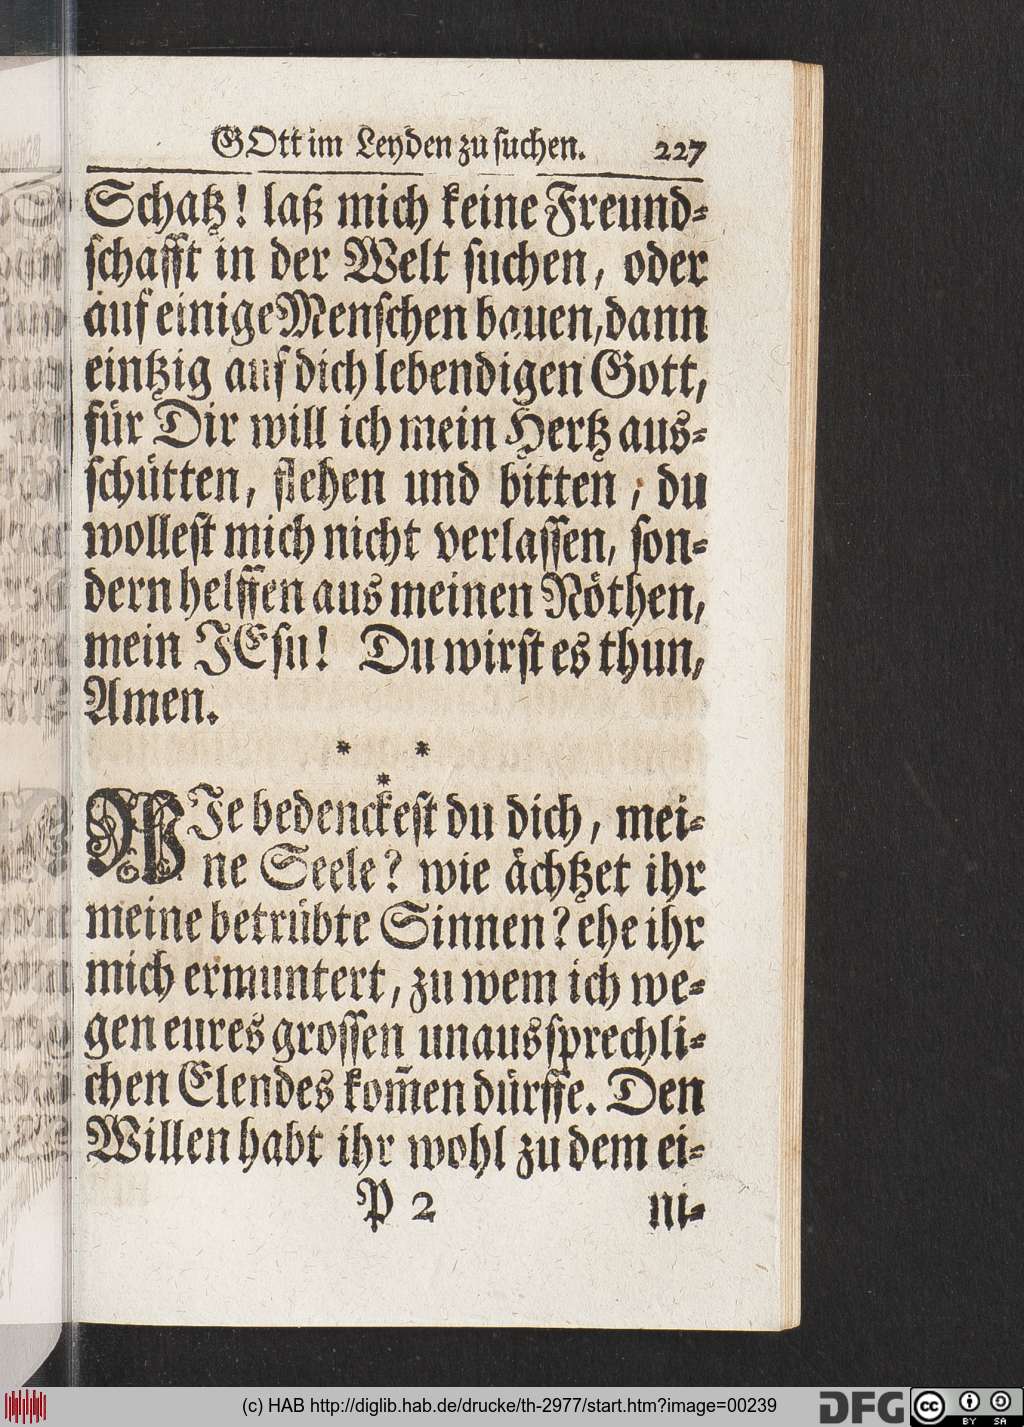 GOtt im Leyden zu suchen. 227
Schatz! laß mich keine Freund⸗
schafft in der Welt suchen, oder
auf einige Menschen bauen, dann
eintzig auf dich lebendigen Gott,
für Dir will ich mein Hertz aus⸗
schütten, flehen und bitten, du
wollest mich nicht verlassen, son⸗
dern helffen aus meinen Nöthen,
mein JEsu! Du wirst es thun,
Amen.
* *
*
WJe bedenckest du dich, mei⸗
ne Seele? wie ächtzet ihr
meine betrübte Sinnen? ehe ihr
mich ermuntert, zu wem ich we⸗
gen eures grossen unaussprechli⸗
chen Elendes kom̃en dürffe. Den
Willen habt ihr wohl zu dem ei⸗
P 2 ni⸗
(c) HAB http://diglib.hab.de/drucke/th-2977/start.htm?image=00239
DFG
cc BY SA